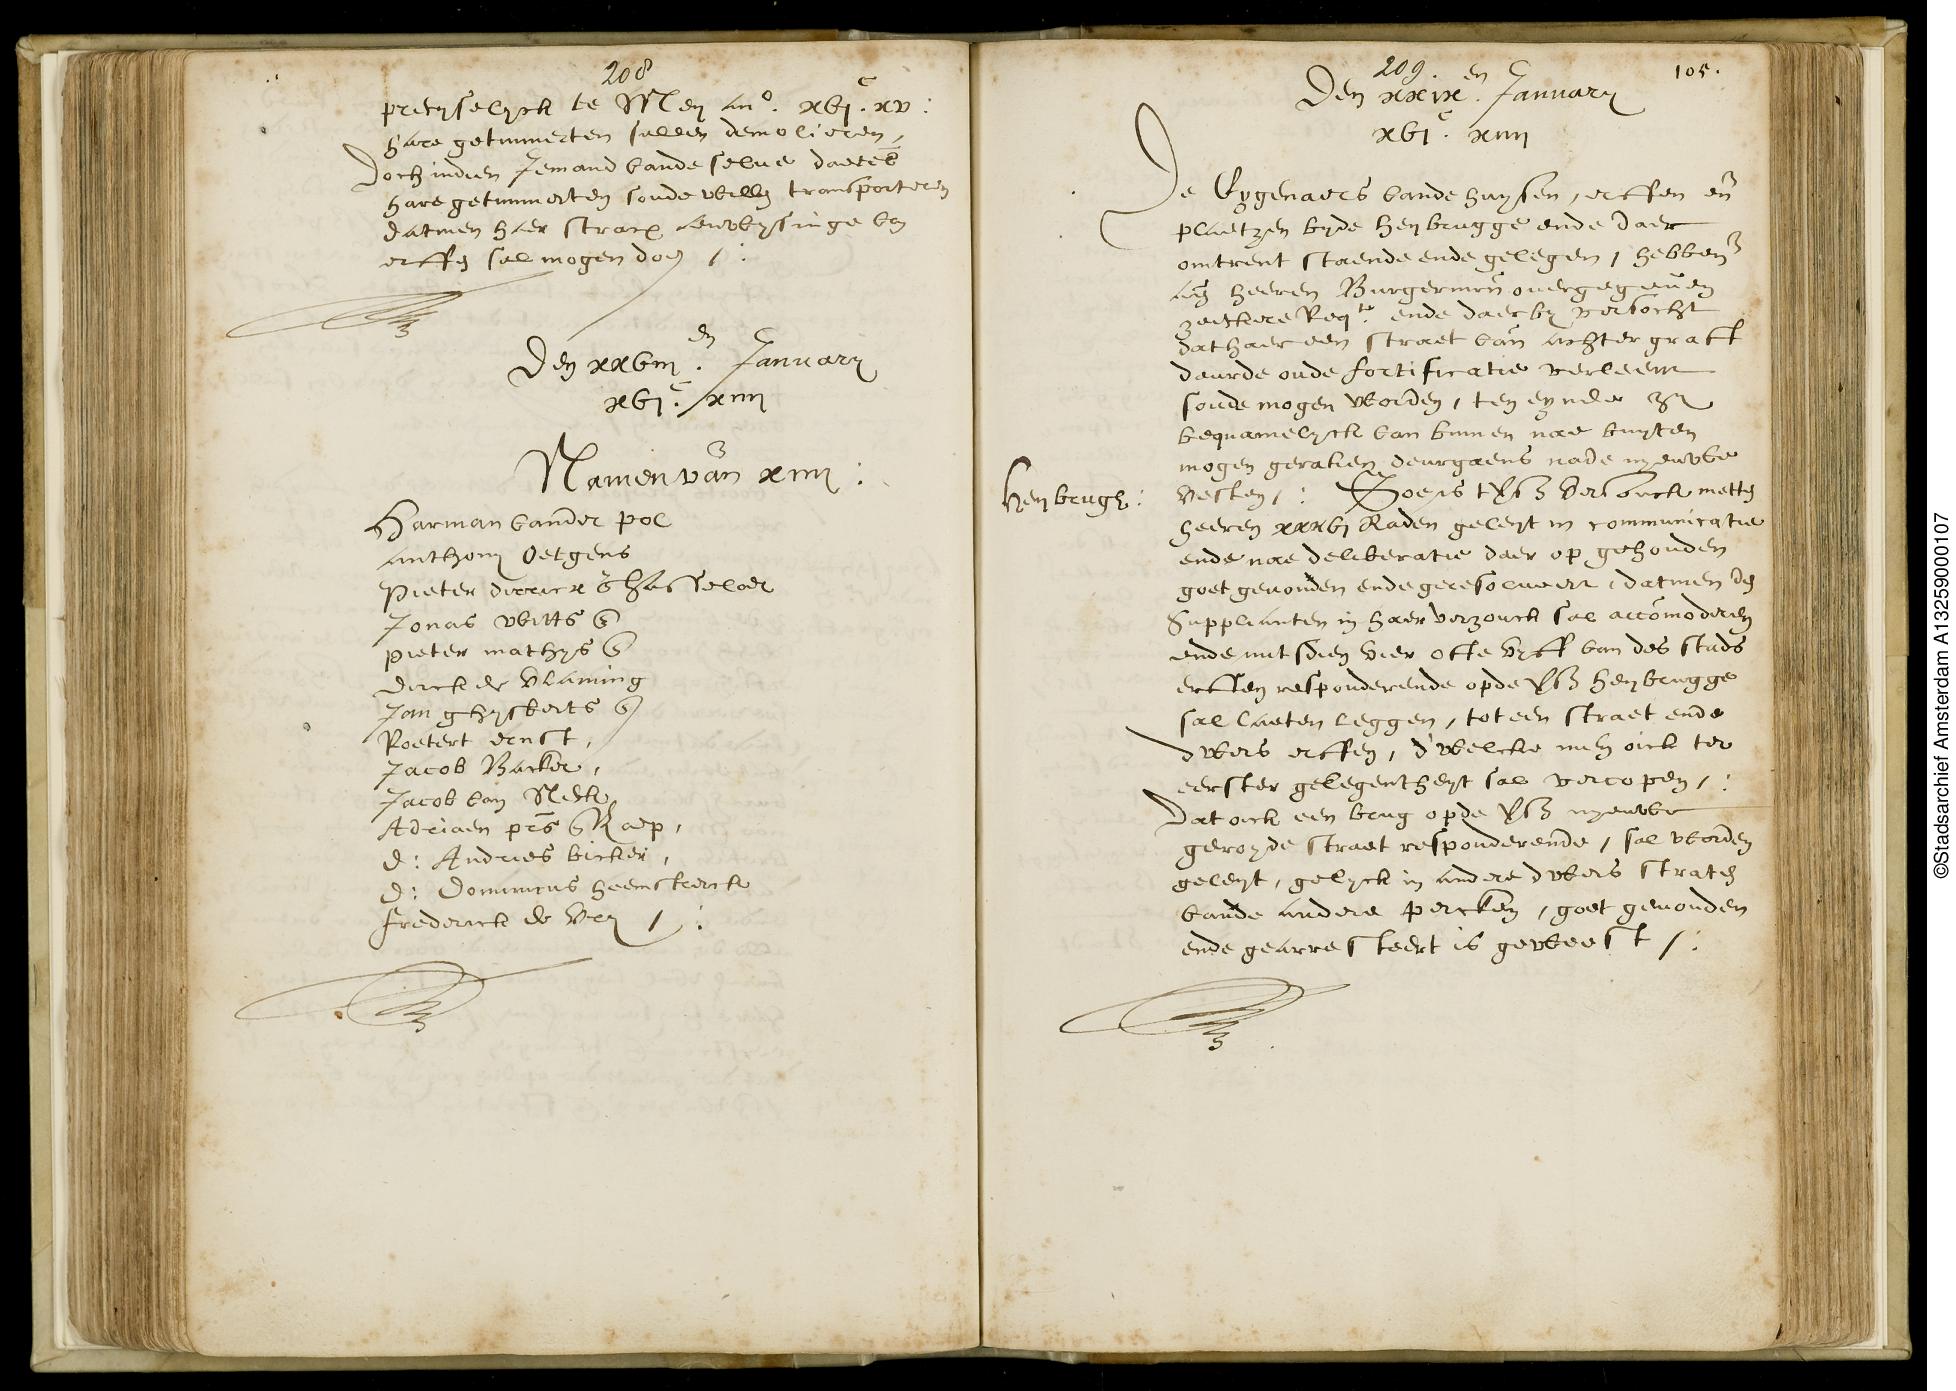 208
precyselyck te Meij an°. xvjᶜ. xv:
hare getimmerten sullen demolieren,
Doch indien Jemand vande selve daerest
hare getimmerten soude willen transporteren
datmen haer stracx aenwysinge van
erffen sal mogen doen /:
Den xxviij en. January
xvjᶜ. xiiij
Namen van xiiij:
Harman vander pol
Anthonij Oetgens
Pieter dirricx hasselaer
Jonas Witts
Pieter mathys
Dirck de Vlaming
Jan ghysberts
Roetert ernst,
Jacob Backer,
Jacob van Neck,
Adriaen prs Raep,
d: Andries bicker,
d: Dominicus heemskerck
frederick de Vrij /:
209. 105.
Den xxix en. January
xvjᶜ. xiiij
De Eygenaers vande huysen, erffen en
plaetzen byde heybrugge ende daer
omtrent staende ende gelegen, hebben
aen heeren Burgermrn overgegeven
zeeckere Reqte. ende daerby versocht
dat haer een straet van achter graft
deurde oude fortificatie verleent
soude mogen worden, ten eynde zy
bequamelyck van binnen nae buyten
mogen geraken deurgaens nade nyeuwe
Heybrugh:
vesten,: Soo is t vsz versouck metten
heeren xxxvj Raden geleyt in communicatie
ende nae deliberatie daer op gehouden
goet gevonden ende geresolveert, datmen den
Supplianten in haer verzouck sal accomoderen
ende mitsdien vier ofte vyff van des stads
erffen responderende opde vsz heybrugge
sal laeten leggen, tot een straet ende
dwers erffen, d'welcke men oick ter
eerster gelegentheyt sal vercopen,:
Dat oick een brug opde vsz nyeuwe
geroyde straet responderende, sal worden
geleyt, gelyck in andere dwers straten
vande andere percken, goet gevonden
ende gearresteert is geweest /:
©Stadsarchief Amsterdam A13259000107